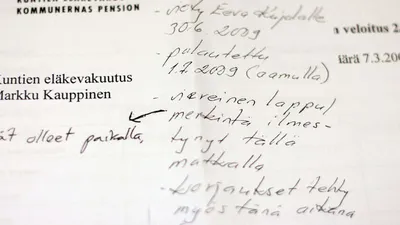 KOMMUNERNAS PENSION
30.6 2009
a veloitus 2.
- palautettu
1.7.2009 (aamulla)
iärä 7.3.200
Kuntien eläkevakuutus
Markku Kauppinen
- viereinen lappu/
merkintä ilmes-
ät olleet paikalla,
tynyt tällä
matkalla
- korjaukset tehty
myös tänä aikana